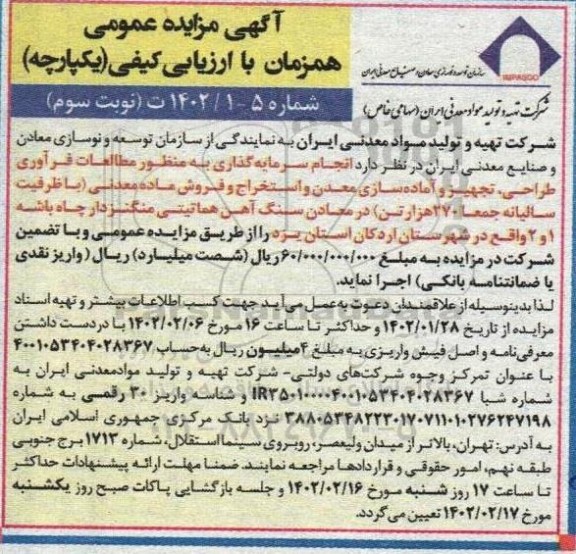 آگهی مزایده عمومی
همزمان با ارزیابی کیفی(یکپارچه)
شماره ۵-۱۴۰۲/۱ ت (نوبت سوم)
IMPASCO
سازمان توسعه و نوسازی معادن و صنایع معدنی ایران
شرکت تهیه و تولید مواد معدنی ایران (سهامی خاص)
شرکت تهیه و تولید مواد معدنی ایران به نمایندگی از سازمان توسعه و نوسازی معادن
و صنایع معدنی ایران در نظر دارد انجام سرمایه گذاری به منظور مطالعات فرآوری
طراحی، تجهیز و آماده سازی معدن و استخراج و فروش ماده معدنی (با ظرفیت
سالیانه جمعا ۲۷۰هزار تن) در معادن سنگ آهن هماتیتی منگنز دار چاه باشه
۱ و ۲ واقع در شهرستان اردکان استان یزد را از طریق مزایده عمومی و با تضمین
شرکت در مزایده به مبلغ ۶۰/۰۰۰/۰۰۰/۰۰۰ ریال (شصت میلیارد) ریال (واریز نقدی
یا ضمانتنامه بانکی) اجرا نماید.
لذا بدینوسیله از علاقمندان دعوت به عمل می آید جهت کسب اطلاعات بیشتر و تهیه اسناد
مزایده از تاریخ ۱۴۰۲/۰۱/۲۸ و حداکثر تا ساعت ۱۶ مورخ ۱۴۰۲/۰۲/۰۶ با در دست داشتن
معرفی نامه و اصل فیش واریزی به مبلغ ۴میلیون ریال به حساب ۴۰۰۱۰۵۳۴۰۴۰۲۸۳۶۷
با عنوان تمرکز وجوه شرکت‌های دولتی- شرکت تهیه و تولید موادمعدنی ایران به
شماره شبا IR۳۵۰۱۰۰۰۰۴۰۰۱۰۵۳۴۰۴۰۲۸۳۶۷ و شناسه واریز ۳۰ رقمی به شماره
۳۸۸۰۵۳۴۸۲۲۳۰۱۷۰۷۱۱۰۱۰۲۷۶۲۴۷۱۹۸ نزد بانک مرکزی جمهوری اسلامی ایران
به آدرس: تهران، بالاتر از میدان ولیعصر، روبروی سینما استقلال، شماره ۱۷۱۳ برج جنوبی
طبقه نهم، امور حقوقی و قراردادها مراجعه نمایند. ضمنا مهلت ارائه پیشنهادات حداکثر
تا ساعت ۱۷ روز شنبه مورخ ۱۴۰۲/۰۲/۱۶ و جلسه بازگشایی پاکات صبح روز یکشنبه
مورخ ۱۴۰۲/۰۲/۱۷ تعیین می گردد.